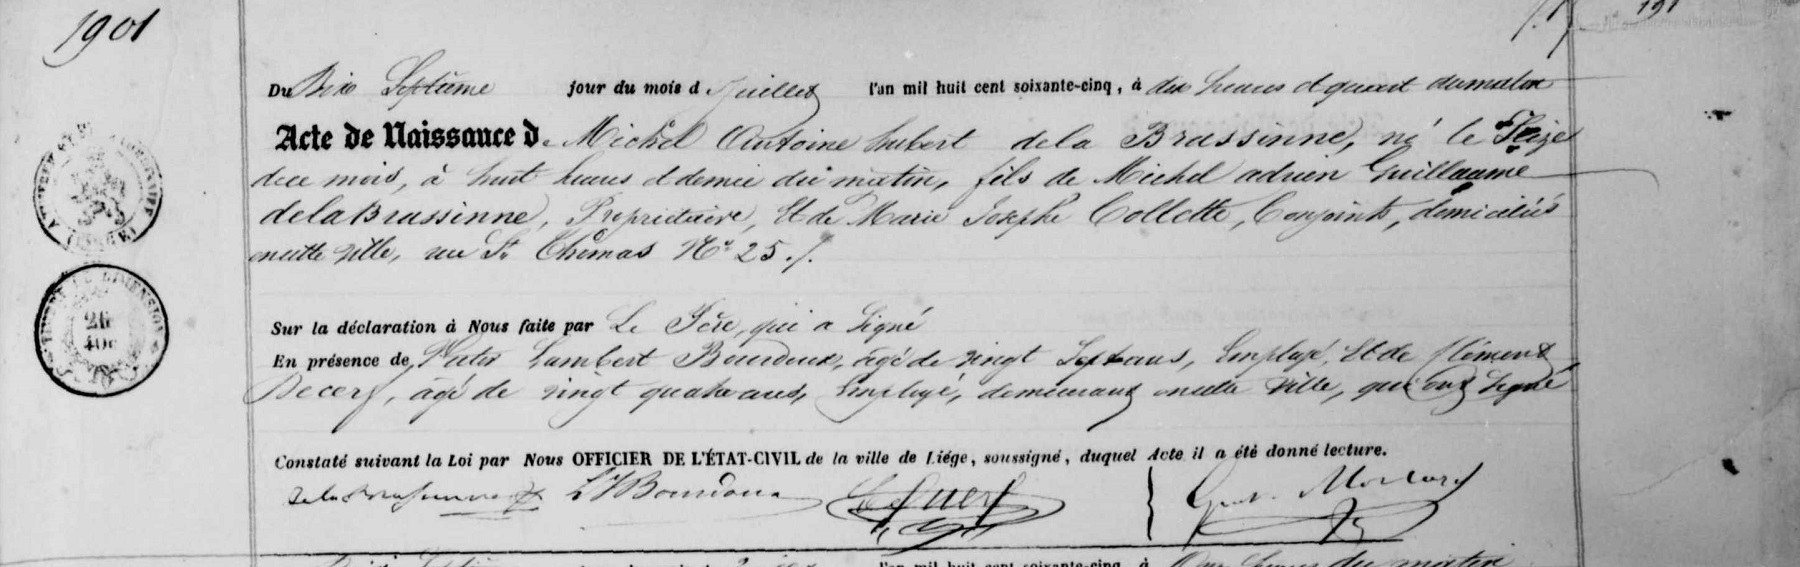 1901
Du Dix Septième jour du mois d Juillet l'an mil huit cent soixante-cinq, à dix heures et quart du matin
Acte de Naissance de Michel Antoine hubert de la Brassinne, né le Seize
de ce mois, à huit heures et demie du matin, fils de Michel adrien Guillaume
de la Brassinne, Propriétaire, et de Marie Josephe Collette, Conjoints, domiciliés
en cette ville, rue St Thomas No 25 ./.
Sur la déclaration à Nous faite par Le Père, qui a Signé
En présence de Lambert Bourdoux, âgé de vingt Sept ans, Employé, et de Clément
Decerf, âgé de vingt quatre ans, Employé, demeurant en cette ville, qui ont Signé
Constaté suivant la Loi par Nous OFFICIER DE L'ÉTAT-CIVIL de la ville de Liége, soussigné, duquel Acte il a été donné lecture.
de la Brassinne L Bourdoux
l'an mil huit cent soixante-cinq, à heures du matin